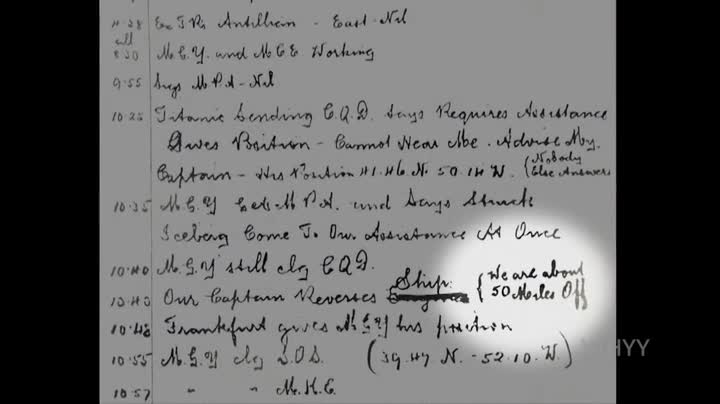 11·28 Ex T.R's Antillian - East - Nil
till
8·30 M.G.Y. and M.C.E Working
9·55 Says M.P.A - Nil
10·25 Titanic Sending C.Q.D. Says Requires Assistance
Gives Position - Cannot Hear Me. Advise My.
Captain - His Position 41.46. N. 50.14 W. { Nobody
Else Answers
10·35 M.G.Y M.P.A. and Says Struck
Iceberg Come To Our Assistance At Once
10·40 M.G.Y still clg C.Q.D.
Our Captain Reverses Ship. { We are about
50 Miles Off
10·48 Frankfurt gives M.G.Y his position
10·55 M.G.Y clg S.O.S. (39.47 N. - 52.10. W.)
10·57 " " M.K.C.
WHYY